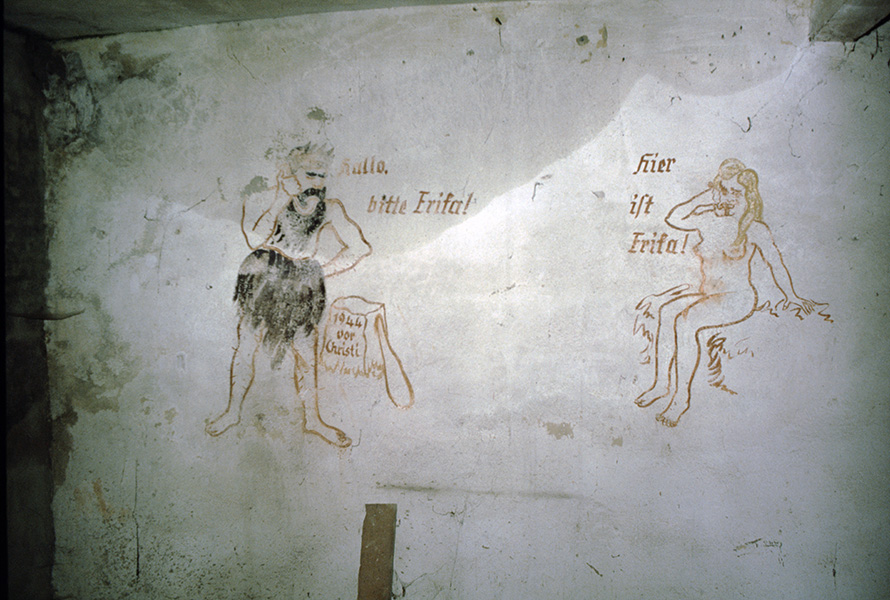 Hallo,
bitte Erika!
1944
vor
Christi
Hier
ist
Erika!